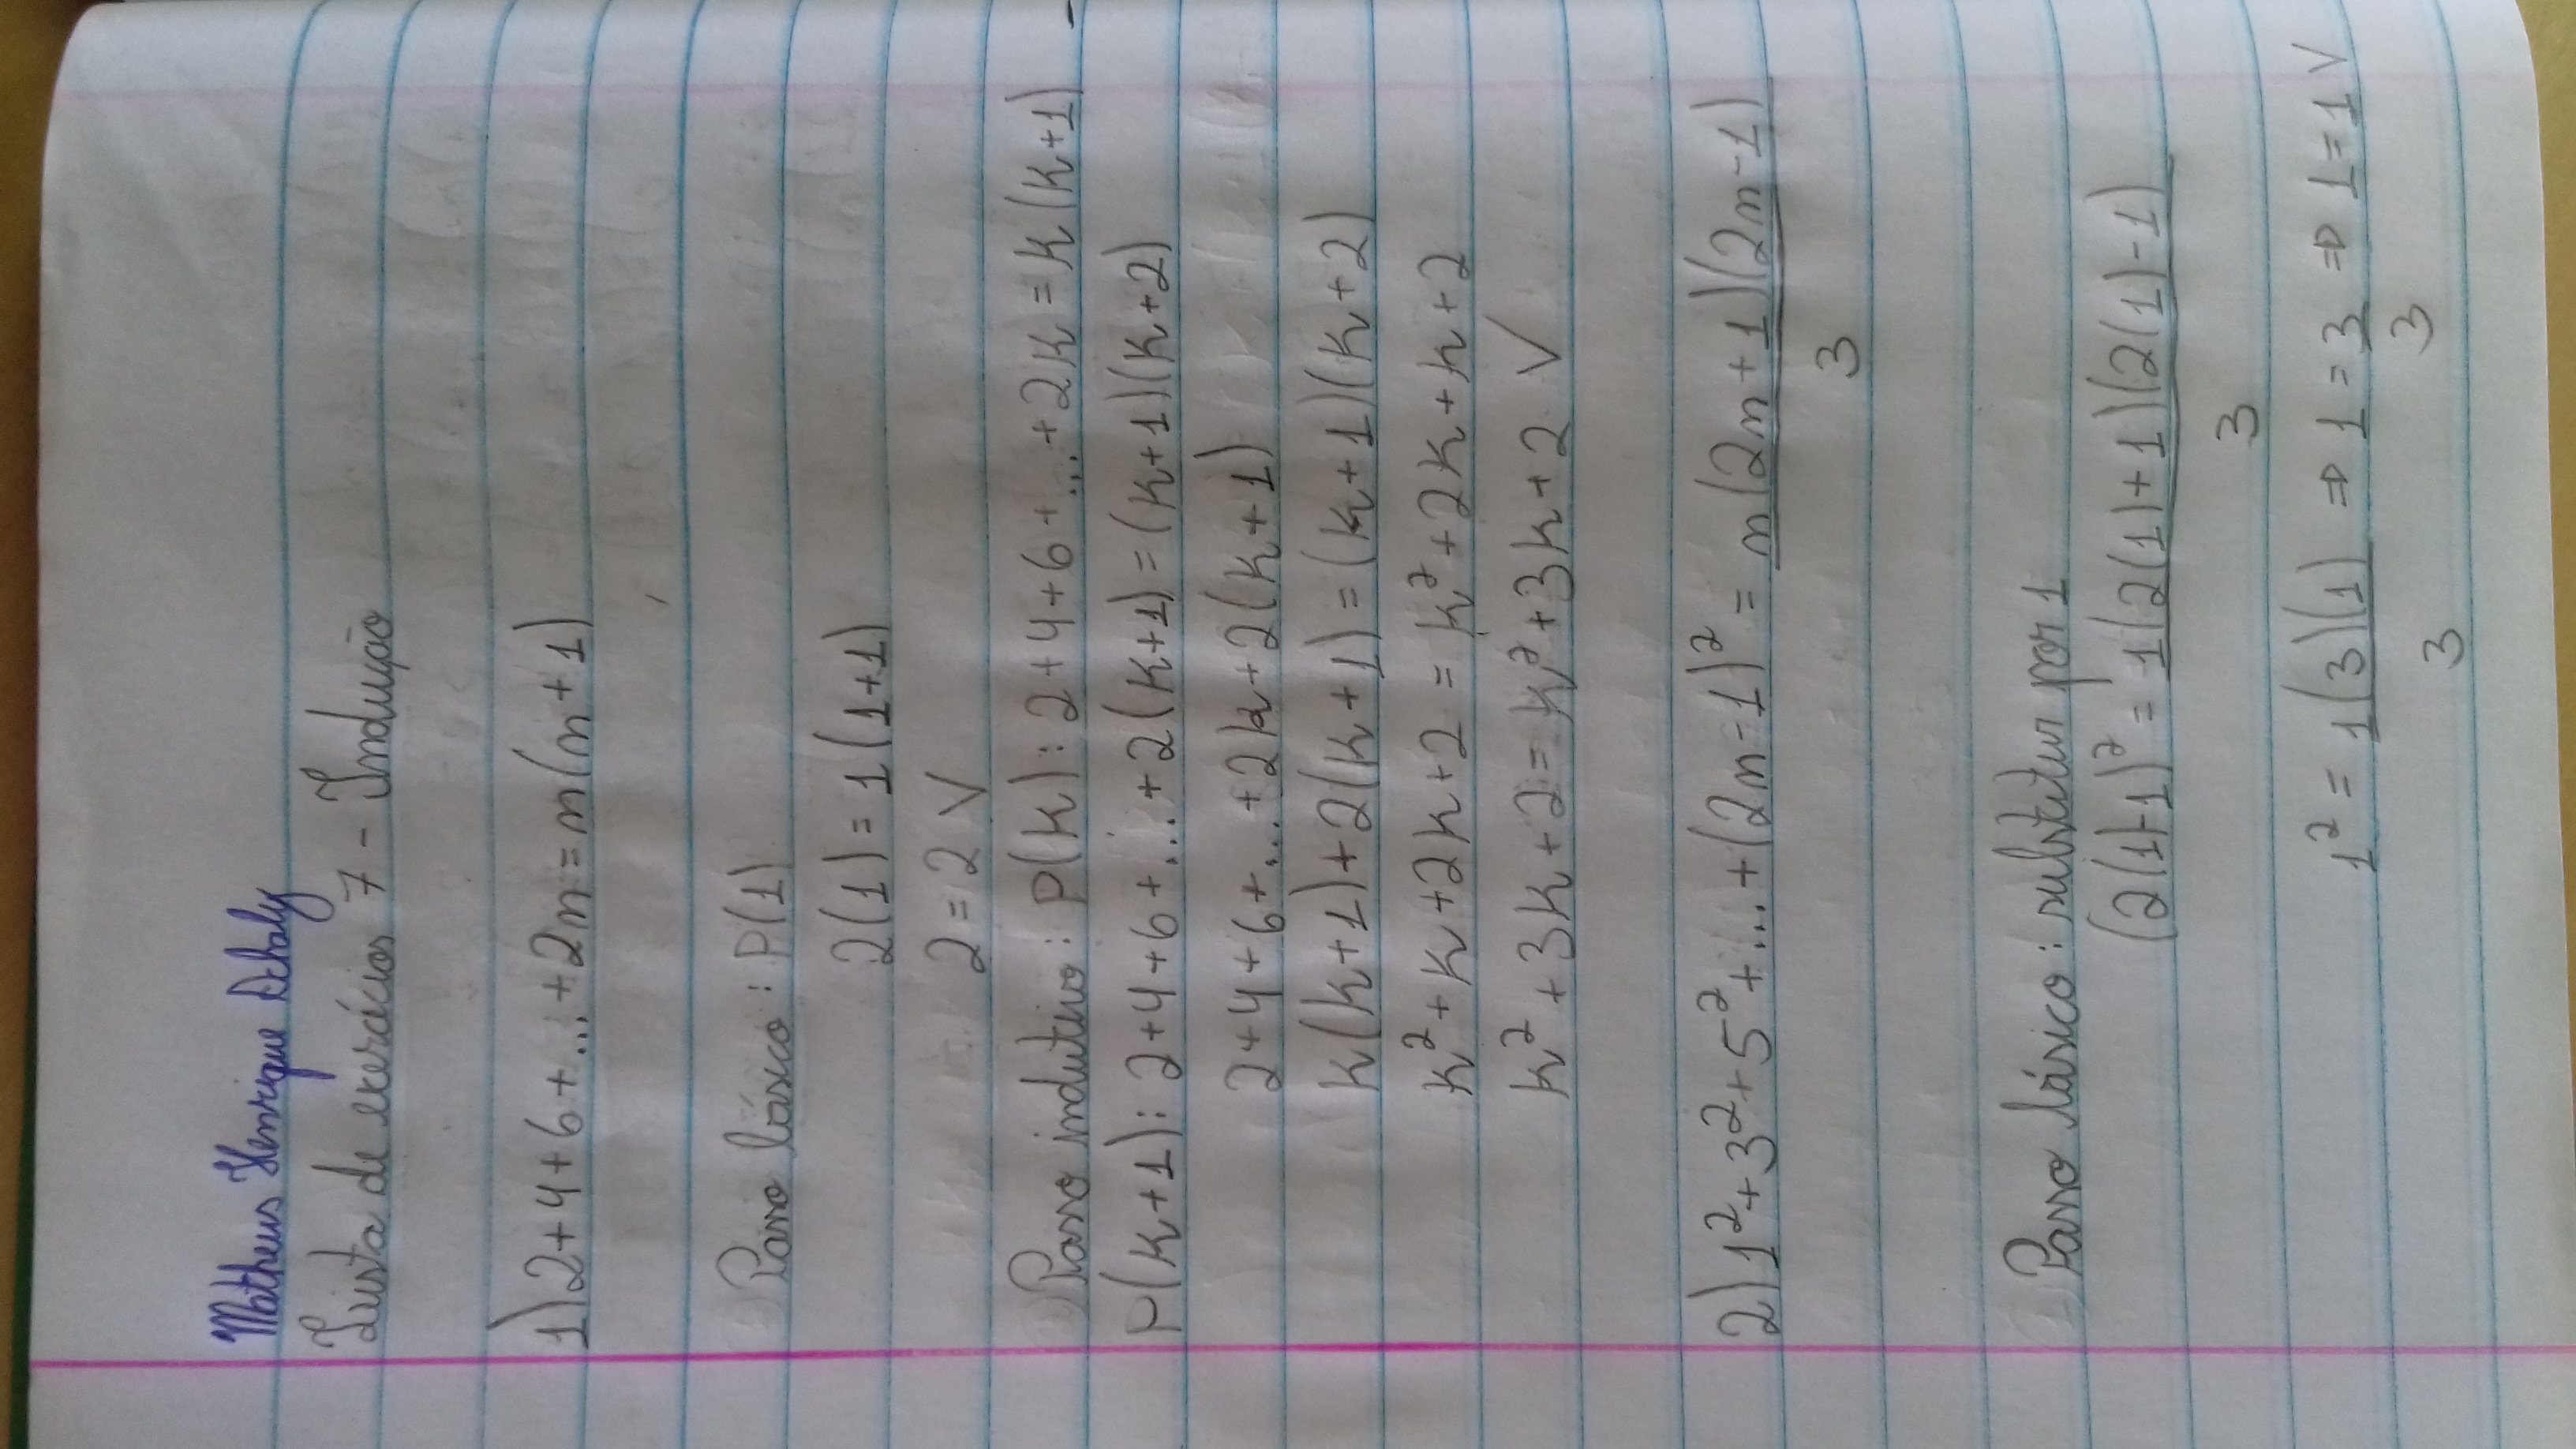 Matheus Henrique Dihaly
Lista de exercícios 7 - Indução
1) 2+4+6+...+2n=n(n+1)
Passo básico: P(1)
2(1)=1(1+1)
2=2 V
Passo indutivo: P(k): 2+4+6+...+2k=k(k+1)
P(k+1): 2+4+6+...+2(k+1)=(k+1)(k+2)
2+4+6+...+2k+2(k+1)
k(k+1)+2(k+1)=(k+1)(k+2)
k²+k+2k+2=k²+2k+k+2
k²+3k+2=k²+3k+2 V
2) 1²+3²+5²+...+(2n-1)²=n(2n+1)(2n-1)
3
Passo básico: substituir por 1
(2(1)-1)²=1(2(1)+1)(2(1)-1)
3
1²=1(3)(1) ⇒ 1=3 ⇒ 1=1 V
3 3